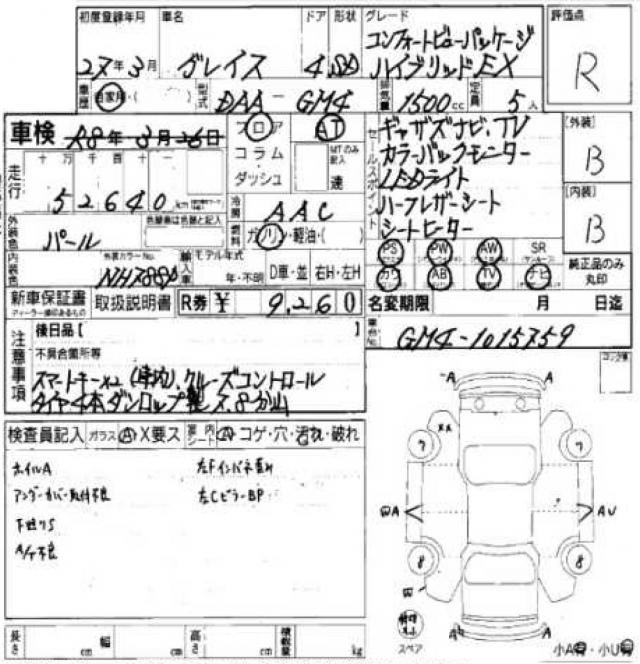 初度登録年月 車名 ドア 形状 グレード 評価点
27年3月 グレイス 4 SD コンフォートビューパッケージ
ハイブリッドEX R
車歴 自家用・( ) 型式 DAA-GM4 排気量 1500cc 定員 5人
車検 A8年3月26日 フロア AT セールスポイント ギャザズナビ、TV [外装]
コラム MTのみ記入 カラーバックモニター B
走行 十万千百十一 ダッシュ 速 LEDライト
52640km 冷房 AAC ハーフレザーシート [内装]
外装色 パール 色替車は色替と記入 燃料 ガソリン・軽油・( ) シートヒーター B
内装色 外装カラーNo. NH788P 輸入車 モデル年式 年・不明 D車・並 右H・左H
PS PW AW SR 純正品のみ
カワ AB TV ナビ 丸印
新車保証書 取扱説明書 R券 ¥ 9,260 名変期限 月 日迄
ディーラー捺印あるもの
注意事項 後日品[ ] 車台No. GM4-1015759
不具合箇所等 コンク値
スマートキーx2(車内)、クルーズコントロール
タイヤ4本ダンロップ製 7、8分山
検査員記入 ガラス A・X要ス 室内シート A・コゲ・穴・汚れ・破れ
ホイルA 左Fインパネ歪み
アンダーカバー取付不良 左CピラーBP
下廻りS
A/T不良
A A
7 xx 7
A AU
8 8
A A
スペア
長さ cm 幅 cm 高さ cm 積載量 kg 小A有・小U有